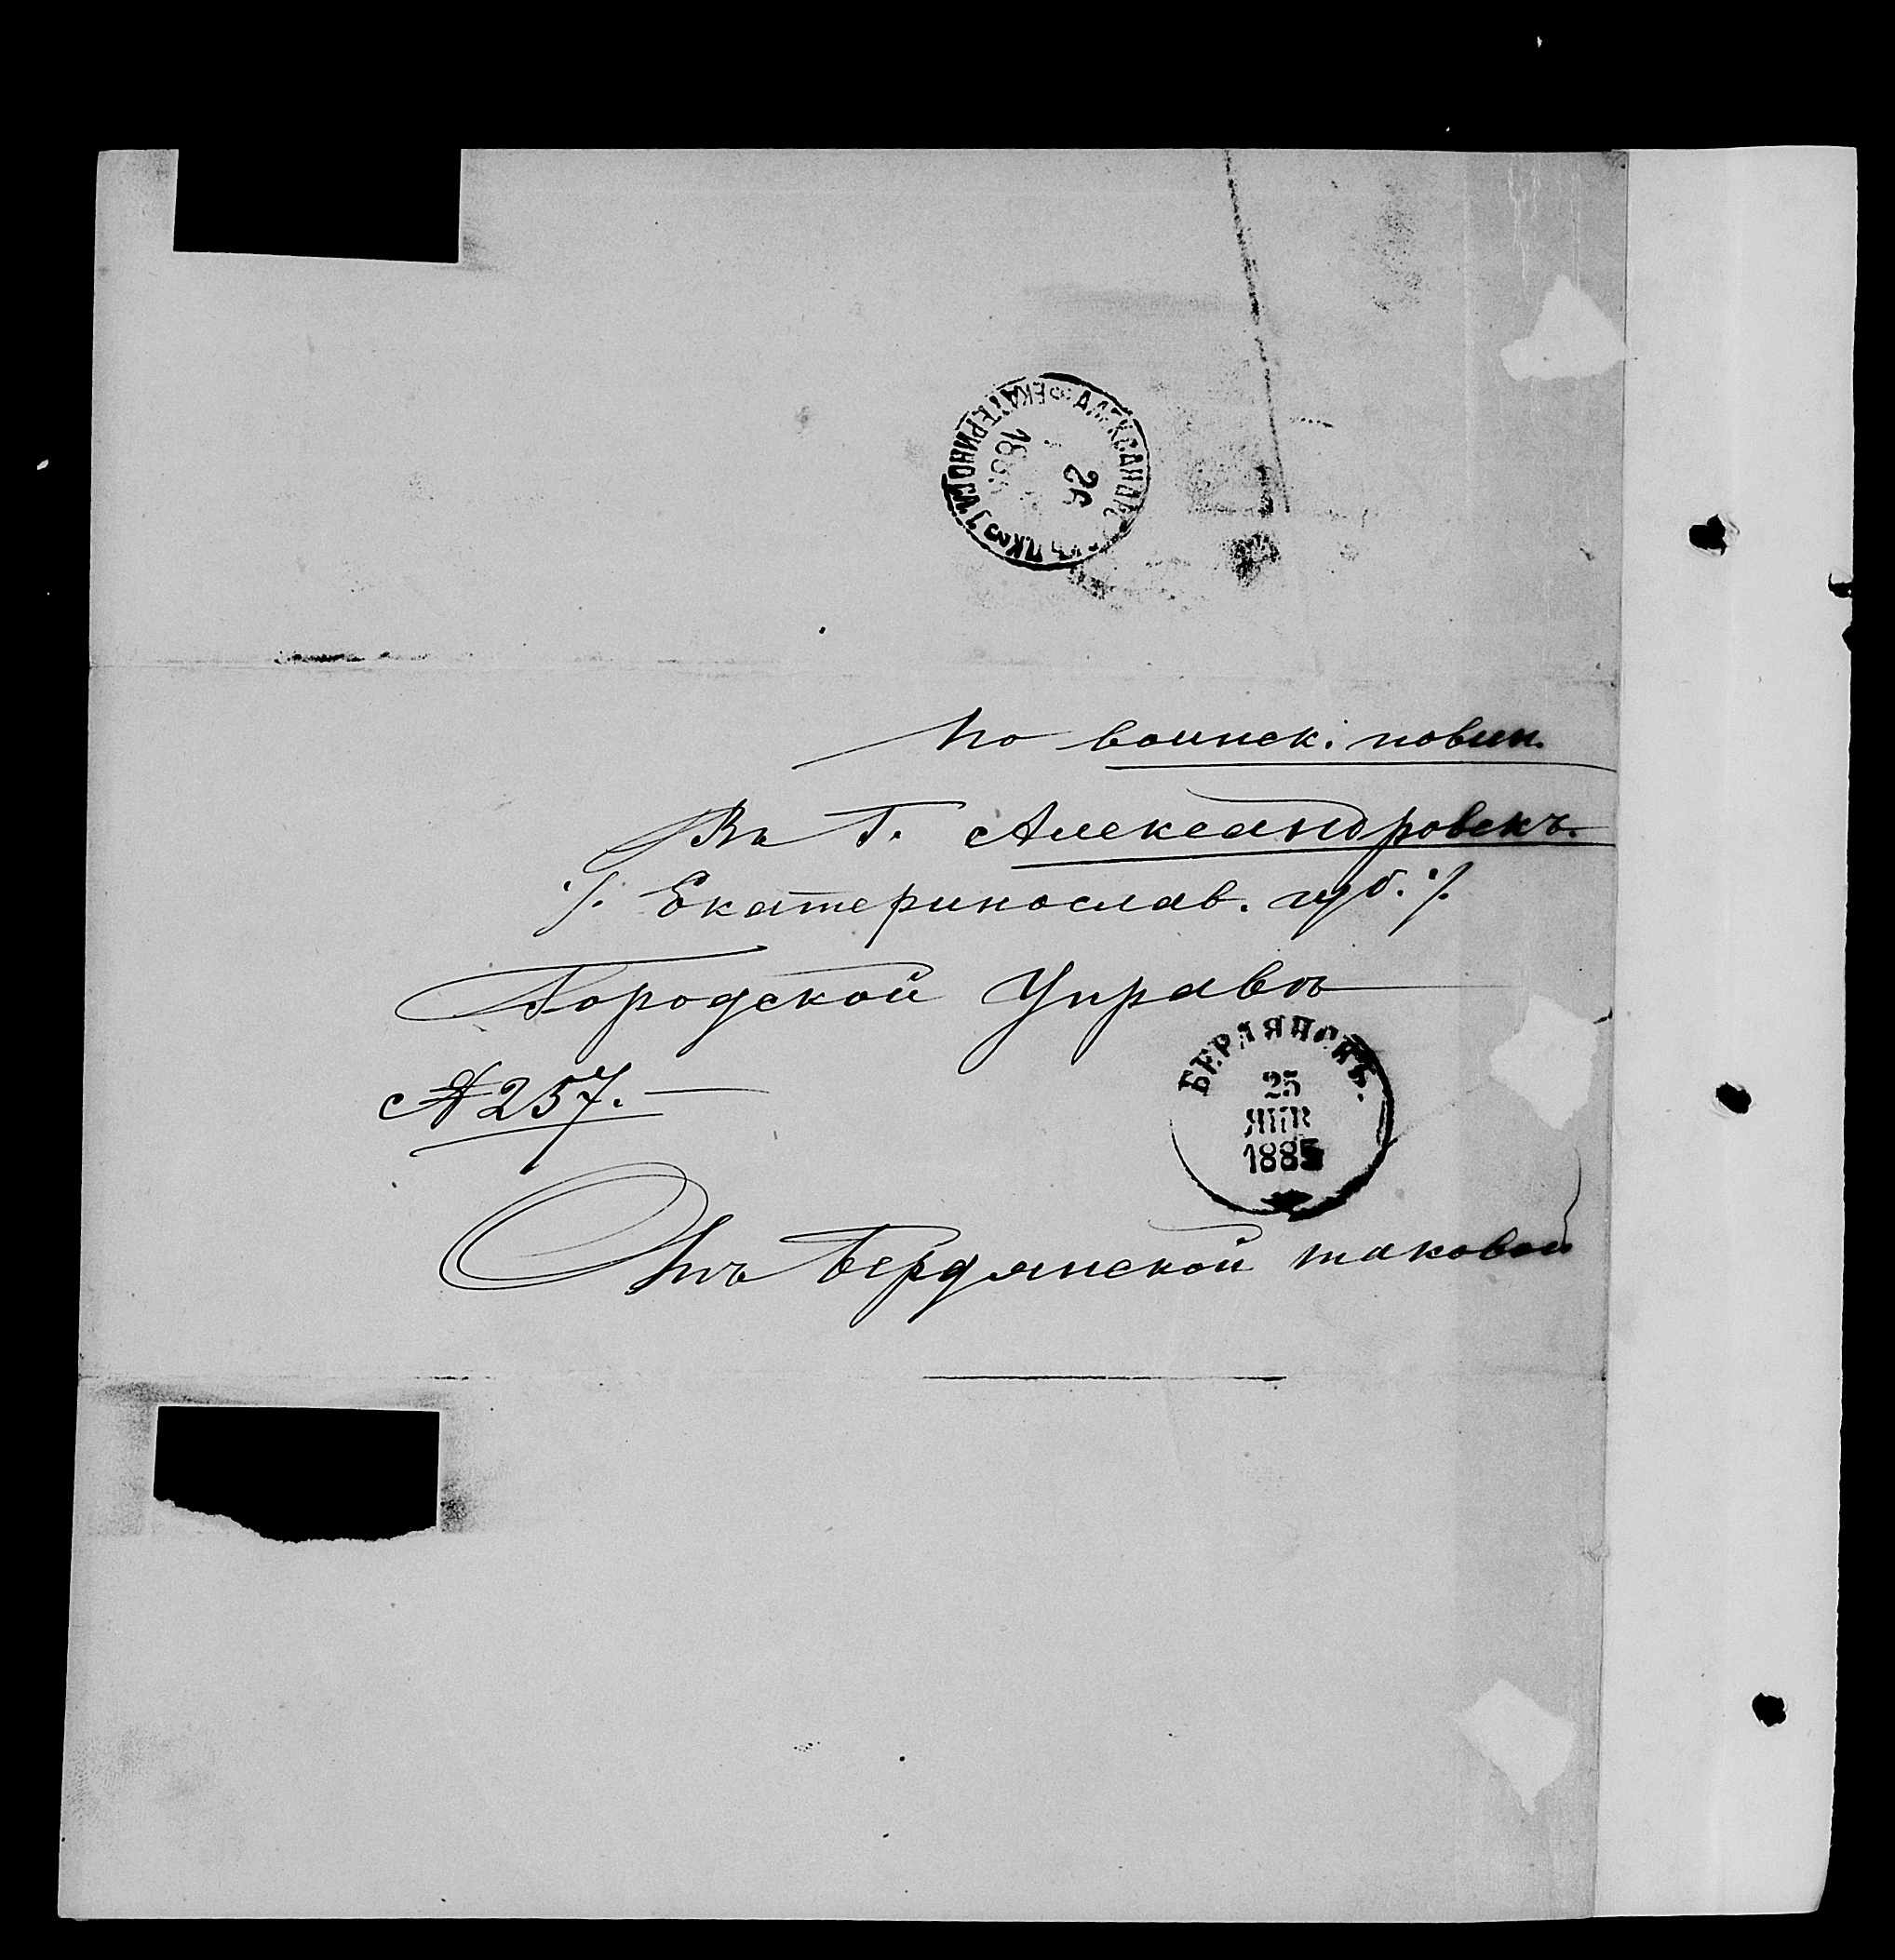 АЛЕКСАНДР
ЕКАТЕРИНОСЛ
26
188
По воинск: повин.
Въ Г. Александровскъ.
·/. Екатеринослав. губ. ·/.
Городской Управѣ
№ 257. —
БЕРДЯНСКЪ.
25
ЯНВ
1885
Отъ Бердянской таковой